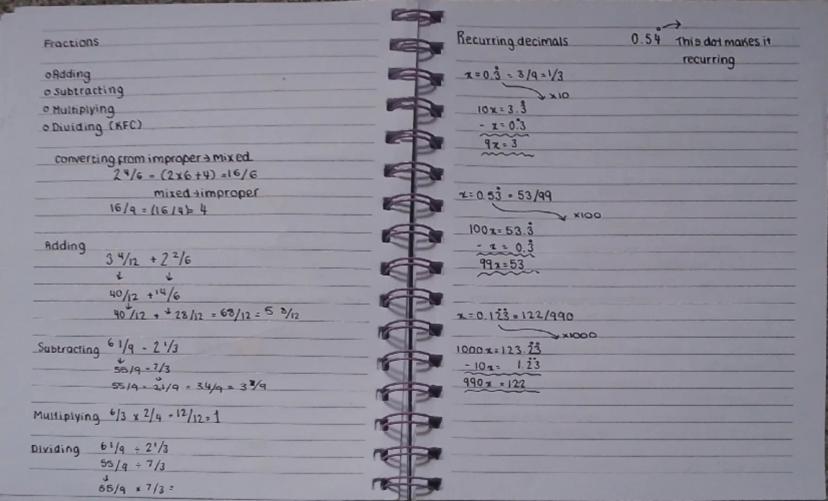 Fractions
o Adding
o Subtracting
o Multiplying
o Dividing (KFC)
converting from improper → mixed
2 4/6 = (2x6+4) = 16/6
mixed → improper
16/4 = (16/4)= 4
Adding
3 4/12 + 2 2/6
↓ ↓
40/12 + 14/6
40/12 + 28/12 = 68/12 = 5 8/12
Subtracting 6 1/9 - 2 1/3
↓
55/9 - 7/3
55/9 - 21/9 = 34/9 = 3 7/9
Multiplying 6/3 x 2/4 = 12/12 = 1
Dividing 6 1/9 ÷ 2 1/3
55/9 ÷ 7/3
↓
55/9 x 7/3 =
Recurring decimals
0.54̇ → This dot makes it
recurring
x = 0.3̇ = 3/9 = 1/3
x10
10x = 3.3̇
- x = 0.3̇
9x = 3
x = 0.53̇ = 53/99
x100
100x = 53.3̇
- x = 0.3̇
99x = 53
x = 0.12̇3̇ = 122/990
x1000
1000x = 123.2̇3̇
- 10x = 1.2̇3̇
990x = 122